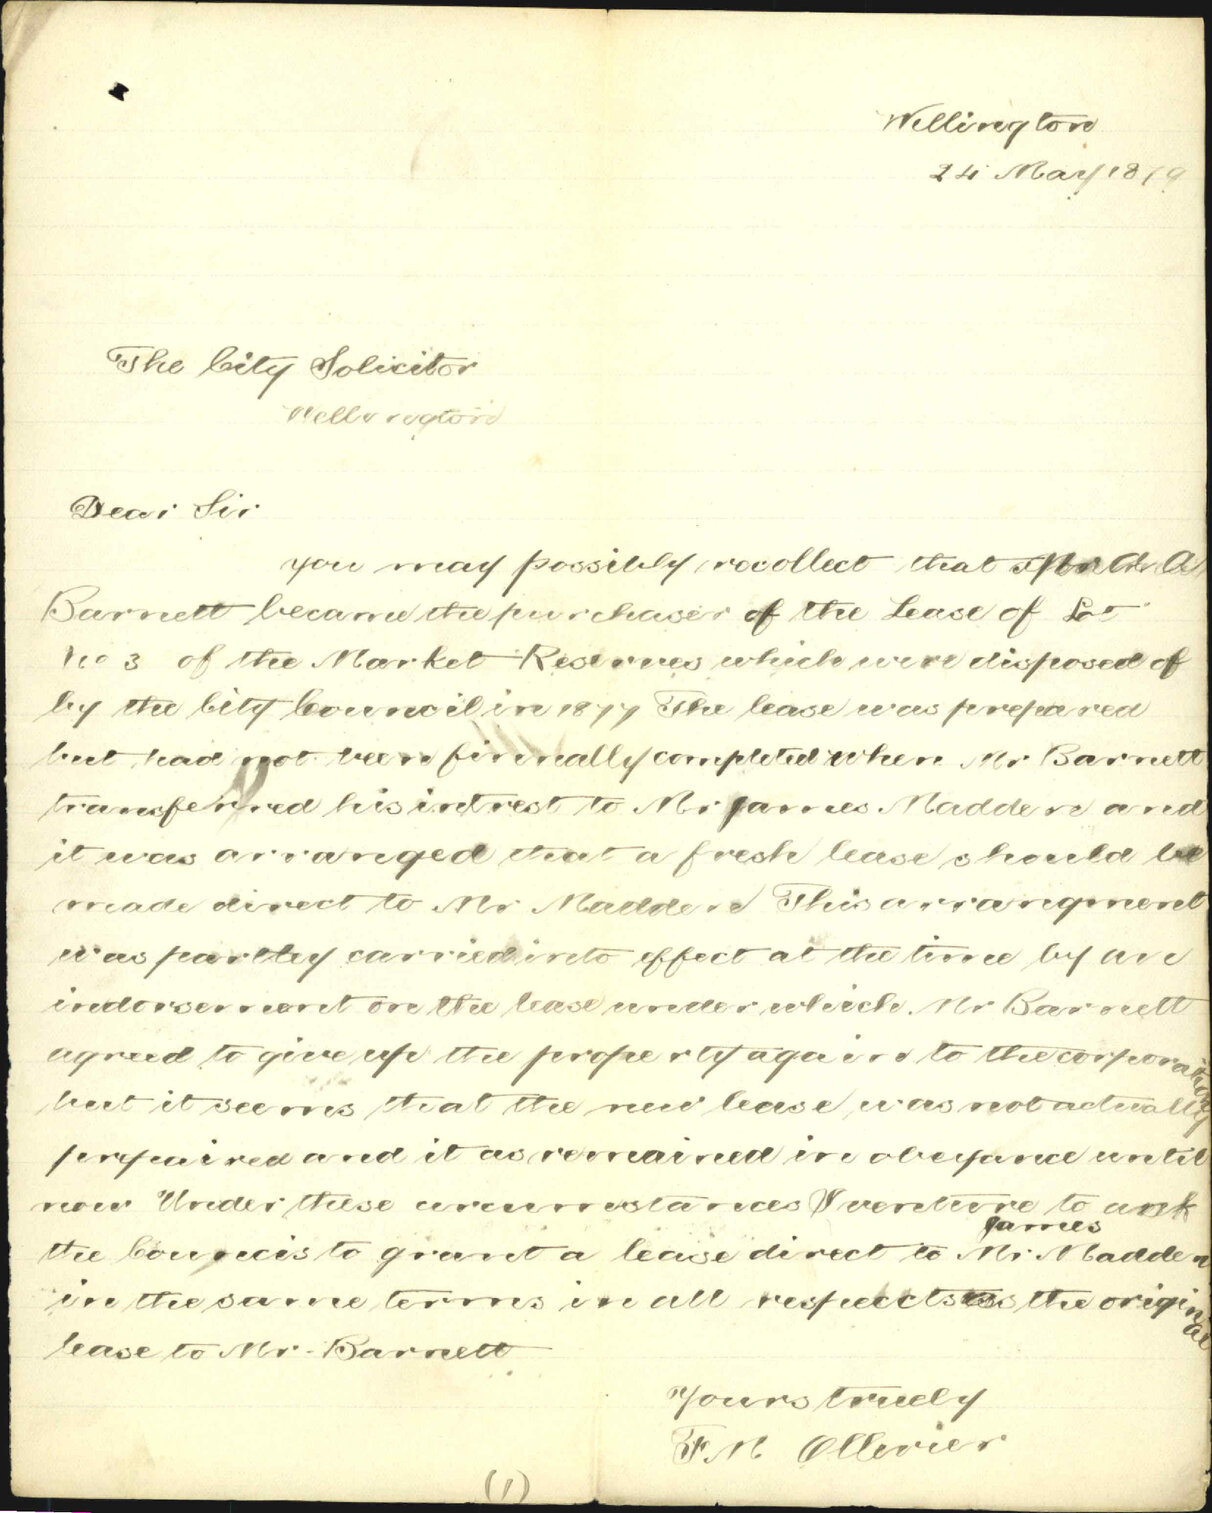 Wellington
24 May 1879
The City Solicitor
Wellington
Dear Sir
you may possibly recollect that Mr A. A
Barnett became the purchaser of the Lease of Lot
No 3 of the Market Reserves which were disposed of
by the City Council in 1877 The lease was prepared
but had not been finnally completed when Mr Barnett
transferred his intrest to Mr James Madden and
it was arranged that a fresh lease should be
made direct to Mr Madden This arrangment
was partley carried into effect at the time by an
indorsement on the lease under which Mr Barnett
agreed to give up the property again to the corporation
but it seems that the new lease was not actually
prepaired and it as remained in obeyance until
now Under these circumstances I venture to ask
the Councis to grant a lease direct to Mr James Madden
in the same terms in all respects as the original
lease to Mr Barnett
Yours truely
F. M Ollivier
(1)